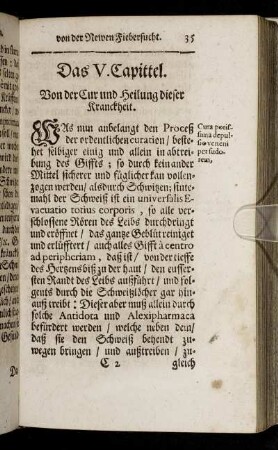 von der Newen Fiebersucht. 35
Das V. Capittel.
Von der Cur und Heilung dieser
Kranckheit.
WAs nun anbelangt den Proceß
der ordentlichen curation / beste-
het selbiger einig und allein in abtrei-
bung des Giffts; so durch kein ander
Mittel sicherer und füglicher kan vollen-
zogen werden / als durch Schwitzen; sinte-
mahl der Schweiß ist ein universalis E-
vacuatio totius corporis, so alle ver-
schlossene Rören des Leibs durchdringt
und eröffnet / das gantze Geblüt reiniget
und erlüfftert / auch alles Gifft à centro
ad peripheriam, daß ist / von der tieffe
des Hertzens biß zu der haut / den eusser-
sten Randt des Leibs außführt / und fol-
gents durch die Schweißlöcher gar hin-
auß treibt; Dieser aber muß allein durch
solche Antidota und Alexipharmaca
befürdert werden / welche neben dem /
daß sie den Schweiß behendt zu-
wegen bringen / und außtreiben / zu-
C 2 gleich
Cura potis-
sima depul-
sio veneni
per sudo-
rem.